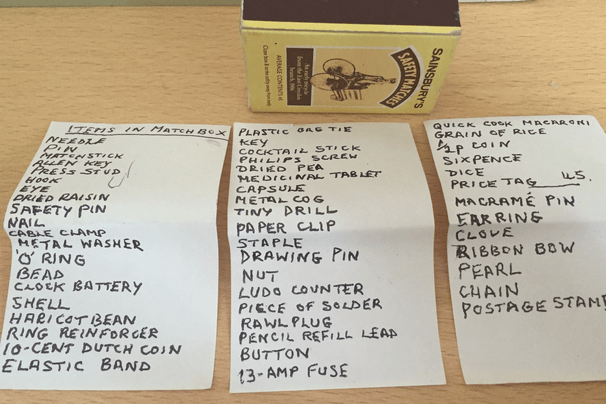 SAINSBURY'S
SAFETY MATCHES
AVERAGE CONTENTS
ITEMS IN MATCHBOX
NEEDLE
PIN
MATCHSTICK
ALLEN KEY
PRESS STUD
HOOK
EYE
DRIED RAISIN
SAFETY PIN
NAIL
CABLE CLAMP
METAL WASHER
'O' RING
BEAD
CLOCK BATTERY
SHELL
HARICOT BEAN
RING REINFORCER
10-CENT DUTCH COIN
ELASTIC BAND
PLASTIC BAG TIE
KEY
COCKTAIL STICK
PHILIPS SCREW
DRIED PEA
MEDICINAL TABLET
CAPSULE
METAL COG
TINY DRILL
PAPER CLIP
STAPLE
DRAWING PIN
NUT
LUDO COUNTER
PIECE OF SOLDER
RAWLPLUG
PENCIL REFILL LEAD
BUTTON
13-AMP FUSE
QUICK COOK MACARONI
GRAIN OF RICE
½p COIN
SIXPENCE
DICE
PRICE TAG
MACRAMÉ PIN
EARRING
CLOVE
RIBBON BOW
PEARL
CHAIN
POSTAGE STAMP